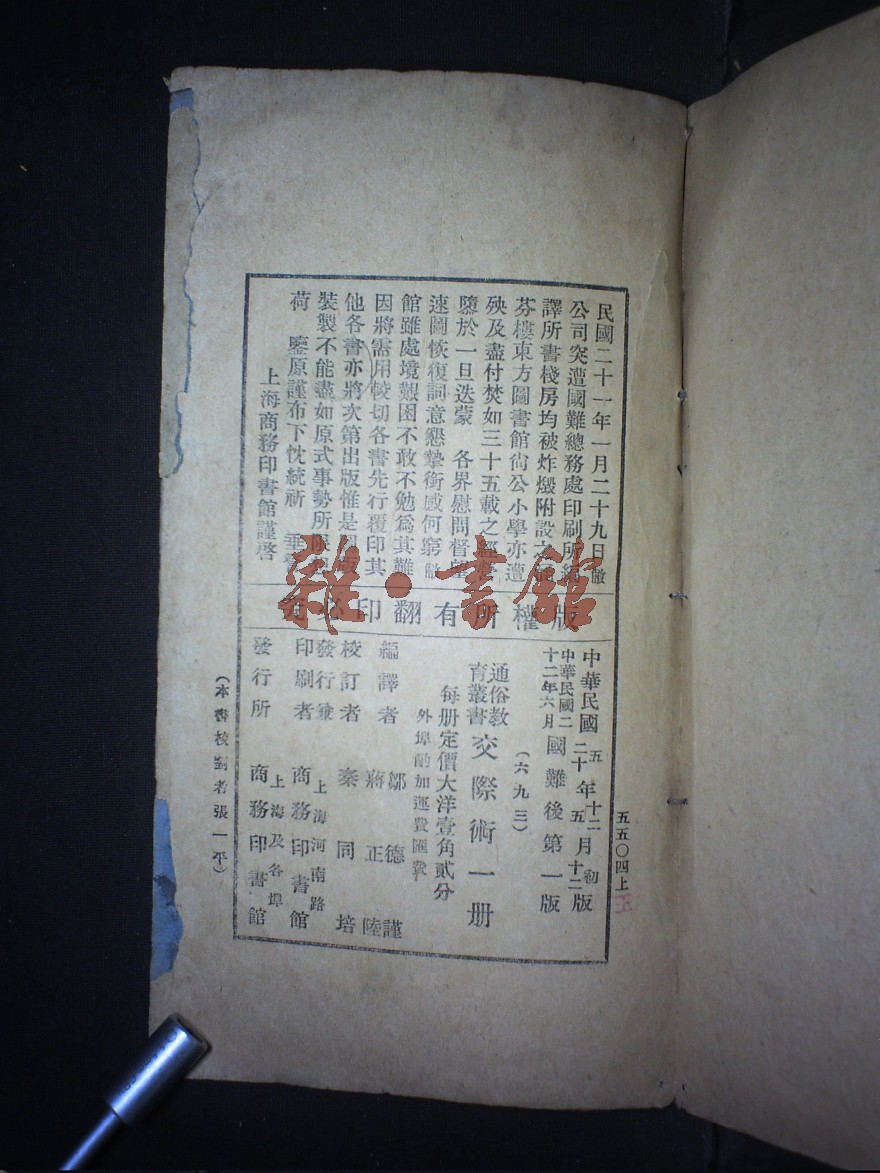 民國二十一年一月二十九日敝
公司突遭國難總務處印刷所編
譯所書棧房均被炸燬附設之涵
芬樓東方圖書館尙公小學亦遭
殃及盡付焚如三十五載之經營
隳於一旦迭蒙　各界慰問督望
速圖恢復詞意懇摯銜感何窮敝
館雖處境艱困不敢不勉爲其難
因將需用較切各書先行覆印其
他各書亦將次第出版惟是圖版
裝製不能盡如原式事勢所限想
荷　鑒原謹布下忱統祈　垂詧
上海商務印書館謹啓
版權所有翻印必究
中華民國五年十二月初版
中華民國二十年五月十二版
中華民國二十二年六月國難後第一版
(六九三)
通俗教育叢書交際術一册
每册定價大洋壹角貳分
外埠酌加運費匯費
編譯者 鄒德謹 蔣正陸
校訂者 秦同培
發行兼印刷者 上海河南路 商務印書館
發行所 上海及各埠 商務印書館
五五〇四上
(本書校對者張一平)
雜·書館